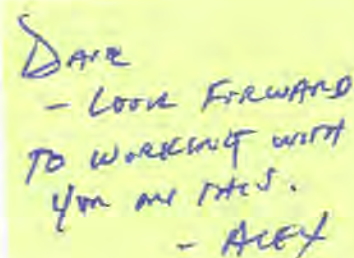 Dave
- LOOK FORWARD
TO WORKING WITH
YOU ON THIS.
- ALEX